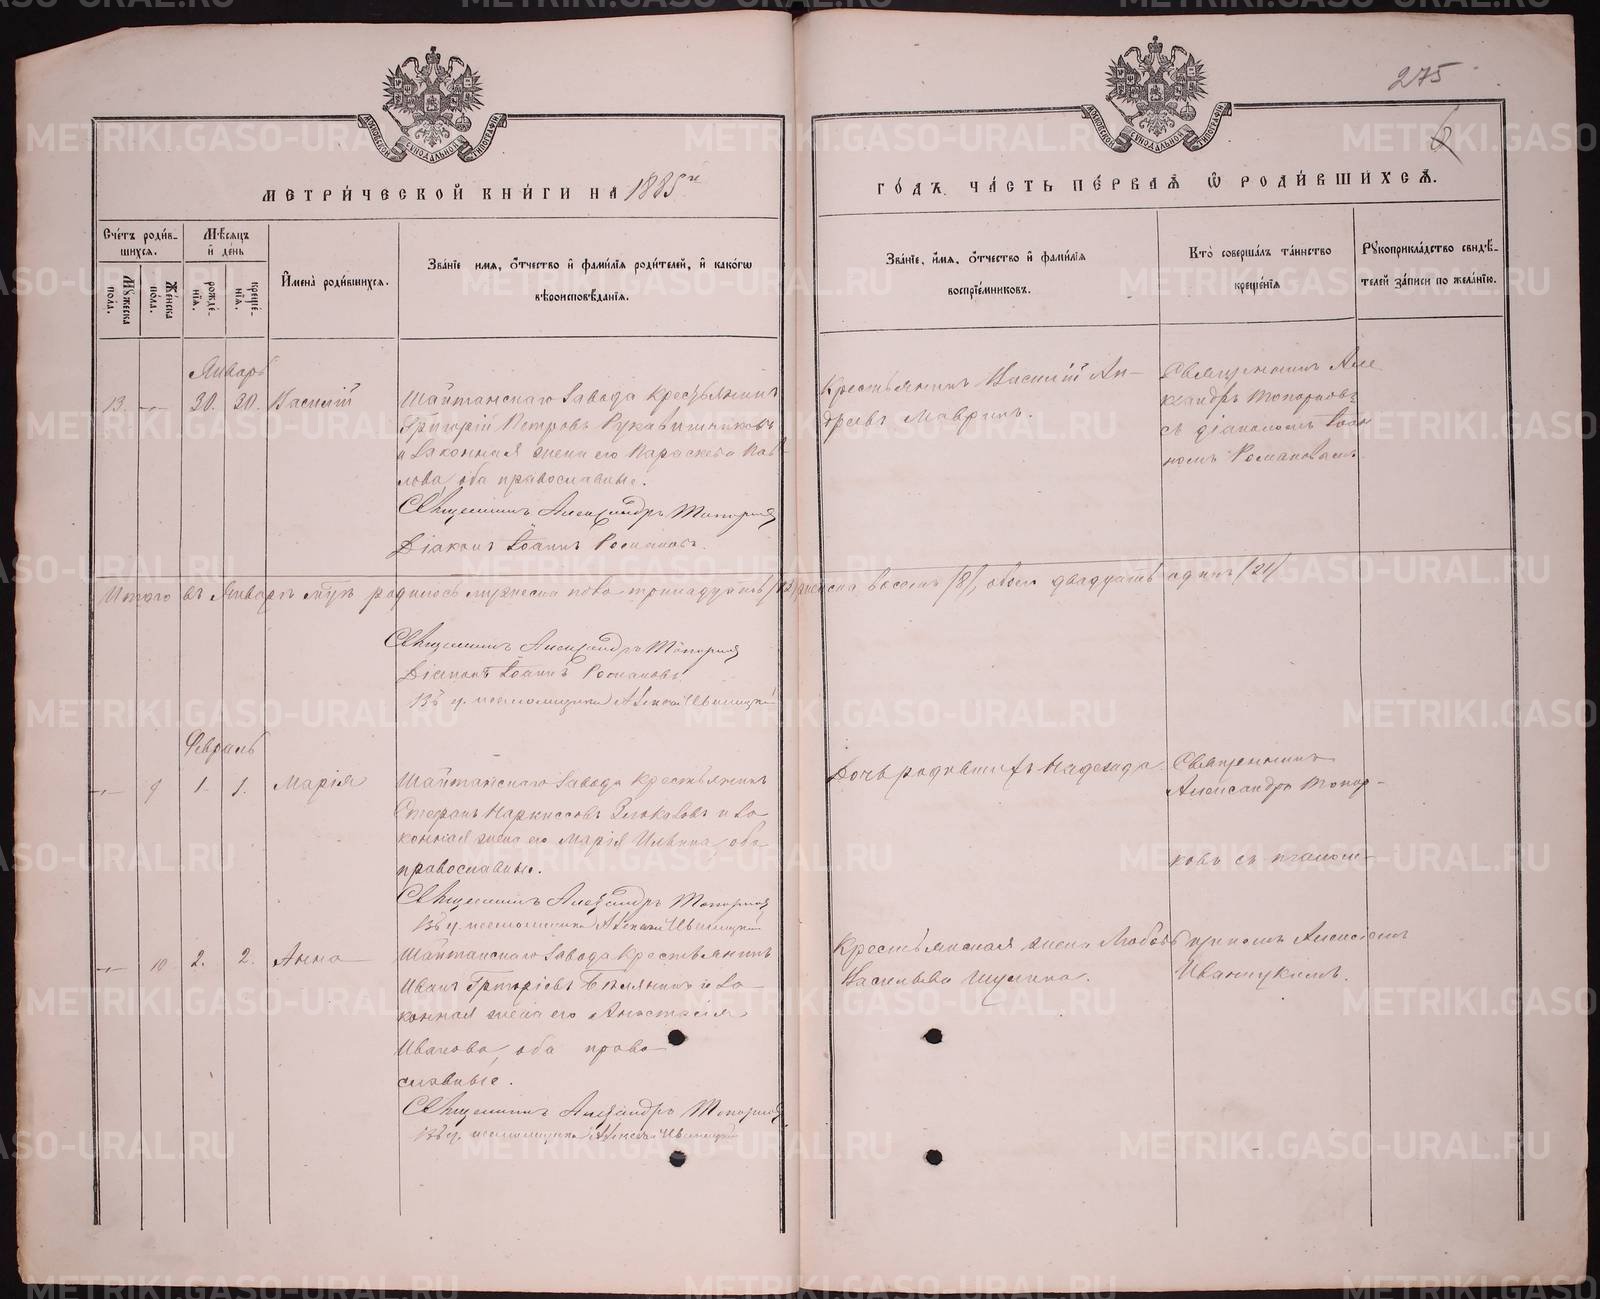 275
6
МОСКОВСКОЙ СѴНОДАЛЬНОЙ ТИПОГРАФІИ
МОСКОВСКОЙ СѴНОДАЛЬНОЙ ТИПОГРАФІИ
МЕТРИ́ЧЕСКОЙ КНИ́ГИ НА 1885й
ГО́ДЪ ЧА́СТЬ ПЕ́РВАѦ Ѽ РОДИ́ВШИХСѦ.
Сче́тъ роди́в-
шихся.
Мꙋ́жеска по́ла.
Же́нска по́ла.
Мѣ́сяцъ
и҆ де́нь
рожде́-
нїя.
креще́-
нїя.
И҆мена̀ роди́вшихся.
Зва́нїе имя, ѻ҆́тчество и҆ фами́лїя роди́телей, и҆ како́гѡ
вѣроисповѣ́данїя.
Зва́нїе, и҆́мя, ѻ҆́тчество и҆ фами́лїя
воспрїе́мниковъ.
Кто̀ соверша́лъ та́инство
креще́нїя
Рꙋкоприкла́дство свидѣ́-
телей за́писи по жела́нїю.
Январь
13. 30. 30. Василій
Шайтанскаго Завода крестьянинъ
Григорій Петровъ Рукавишниковъ
и законная жена его Параскева Пав-
лова, оба православные.
Священникъ Александръ Топорковъ
Діаконъ Іоаннъ Романовъ.
Крестьянинъ Василій Ан-
дреевъ Мавринъ.
Священникъ Але
ксандръ Топорковъ
съ діакономъ Іоан
номъ Романовымъ
Итого въ Январѣ м-цѣ родилось мужеска пола тринадцать /13/ женска восемь /8/, обоего двадцать одинъ /21/
Священникъ Александръ Топорковъ
Діаконъ Іоаннъ Романовъ
И. д. псаломщика Алексѣй
Февраль
9 1. 1. Марія
Шайтанскаго Завода крестьянинъ
Стефанъ Наркиссовъ Злоказовъ и за
конная жена его Марія Ильина, оба
православные.
Священникъ Александръ Топорковъ
И. д. псаломщика Алексѣй
Дочь родителей Надежда
Священникъ
Александръ Топор-
ковъ съ псалом-
10 2. 2. Анна
Шайтанскаго Завода крестьянинъ
Иванъ Григорьевъ Бѣлянинъ и за-
конная жена его Анастасія
Иванова, оба право
славные.
Священникъ Александръ Топорковъ
И. д. псаломщика Алексѣй
Крестьянская жена Любовь
Васильева Шулина.
Алексѣемъ